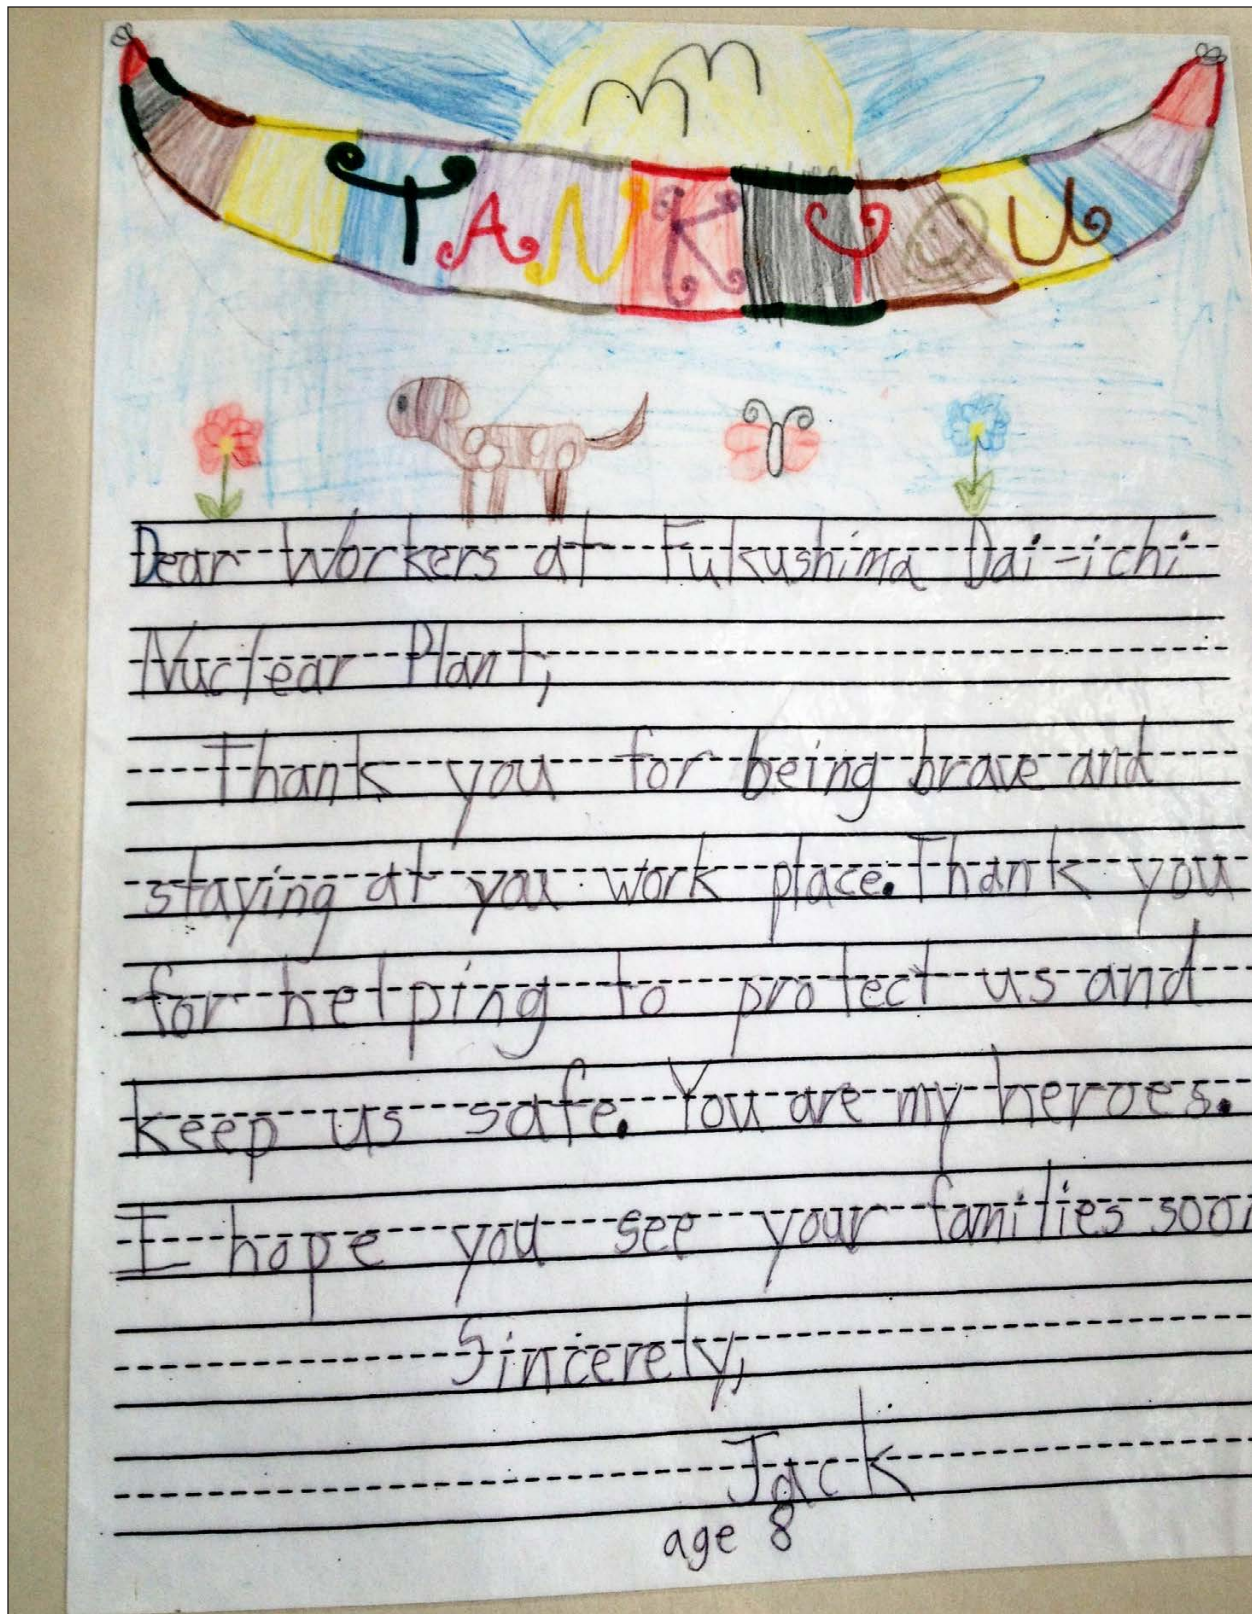 TANK YOU
Dear Workers at Fukushima Dai-ichi
Nuclear Plant,
Thank you for being brave and
staying at you work place. Thank you
for helping to protect us and
keep us safe. You are my heroes.
I hope you see your families soon
Sincerely,
Jack
age 8